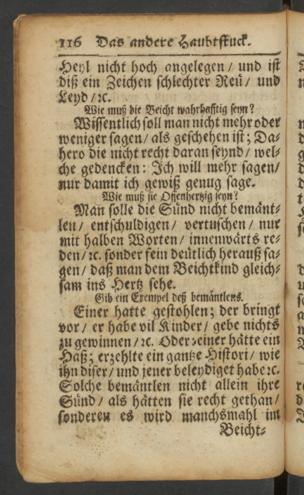 116 Das andere Haubtstuck.
Heyl nicht hoch angelegen / und ist
diß ein Zeichen schlechter Reü / und
Leyd / ꝛc.
Wie muß die Beicht wahrhafftig seyn?
Wissentlich soll man nicht mehr oder
weniger sagen / als geschehen ist; Da-
hero die nicht recht daran seynd / wel-
che gedencken: Ich will mehr sagen /
nur damit ich gewiß genug sage.
Wie muß sie Offenhertzig seyn?
Man solle die Sünd nicht bemänt-
len / entschuldigen / vertuschen / nur
mit halben Worten / innenwärts re-
den / ꝛc. sonder fein deütlich herauß sa-
gen / daß man dem Beichtkind gleich-
sam ins Hertz sehe.
Gib ein Exempel deß bemäntlens.
Einer hatte gestohlen; der bringt
vor / er habe vil Kinder / gebe nichts
zu gewinnen / ꝛc. Oder einer hätte ein
Haß; erzehlte ein gantze Histori / wie
ihn diser / und jener beleydiget habe ꝛc.
Solche bemäntlen nicht allein ihre
Sünd / als hätten sie recht gethan /
sonderen es wird manchsmahl im
Beicht-